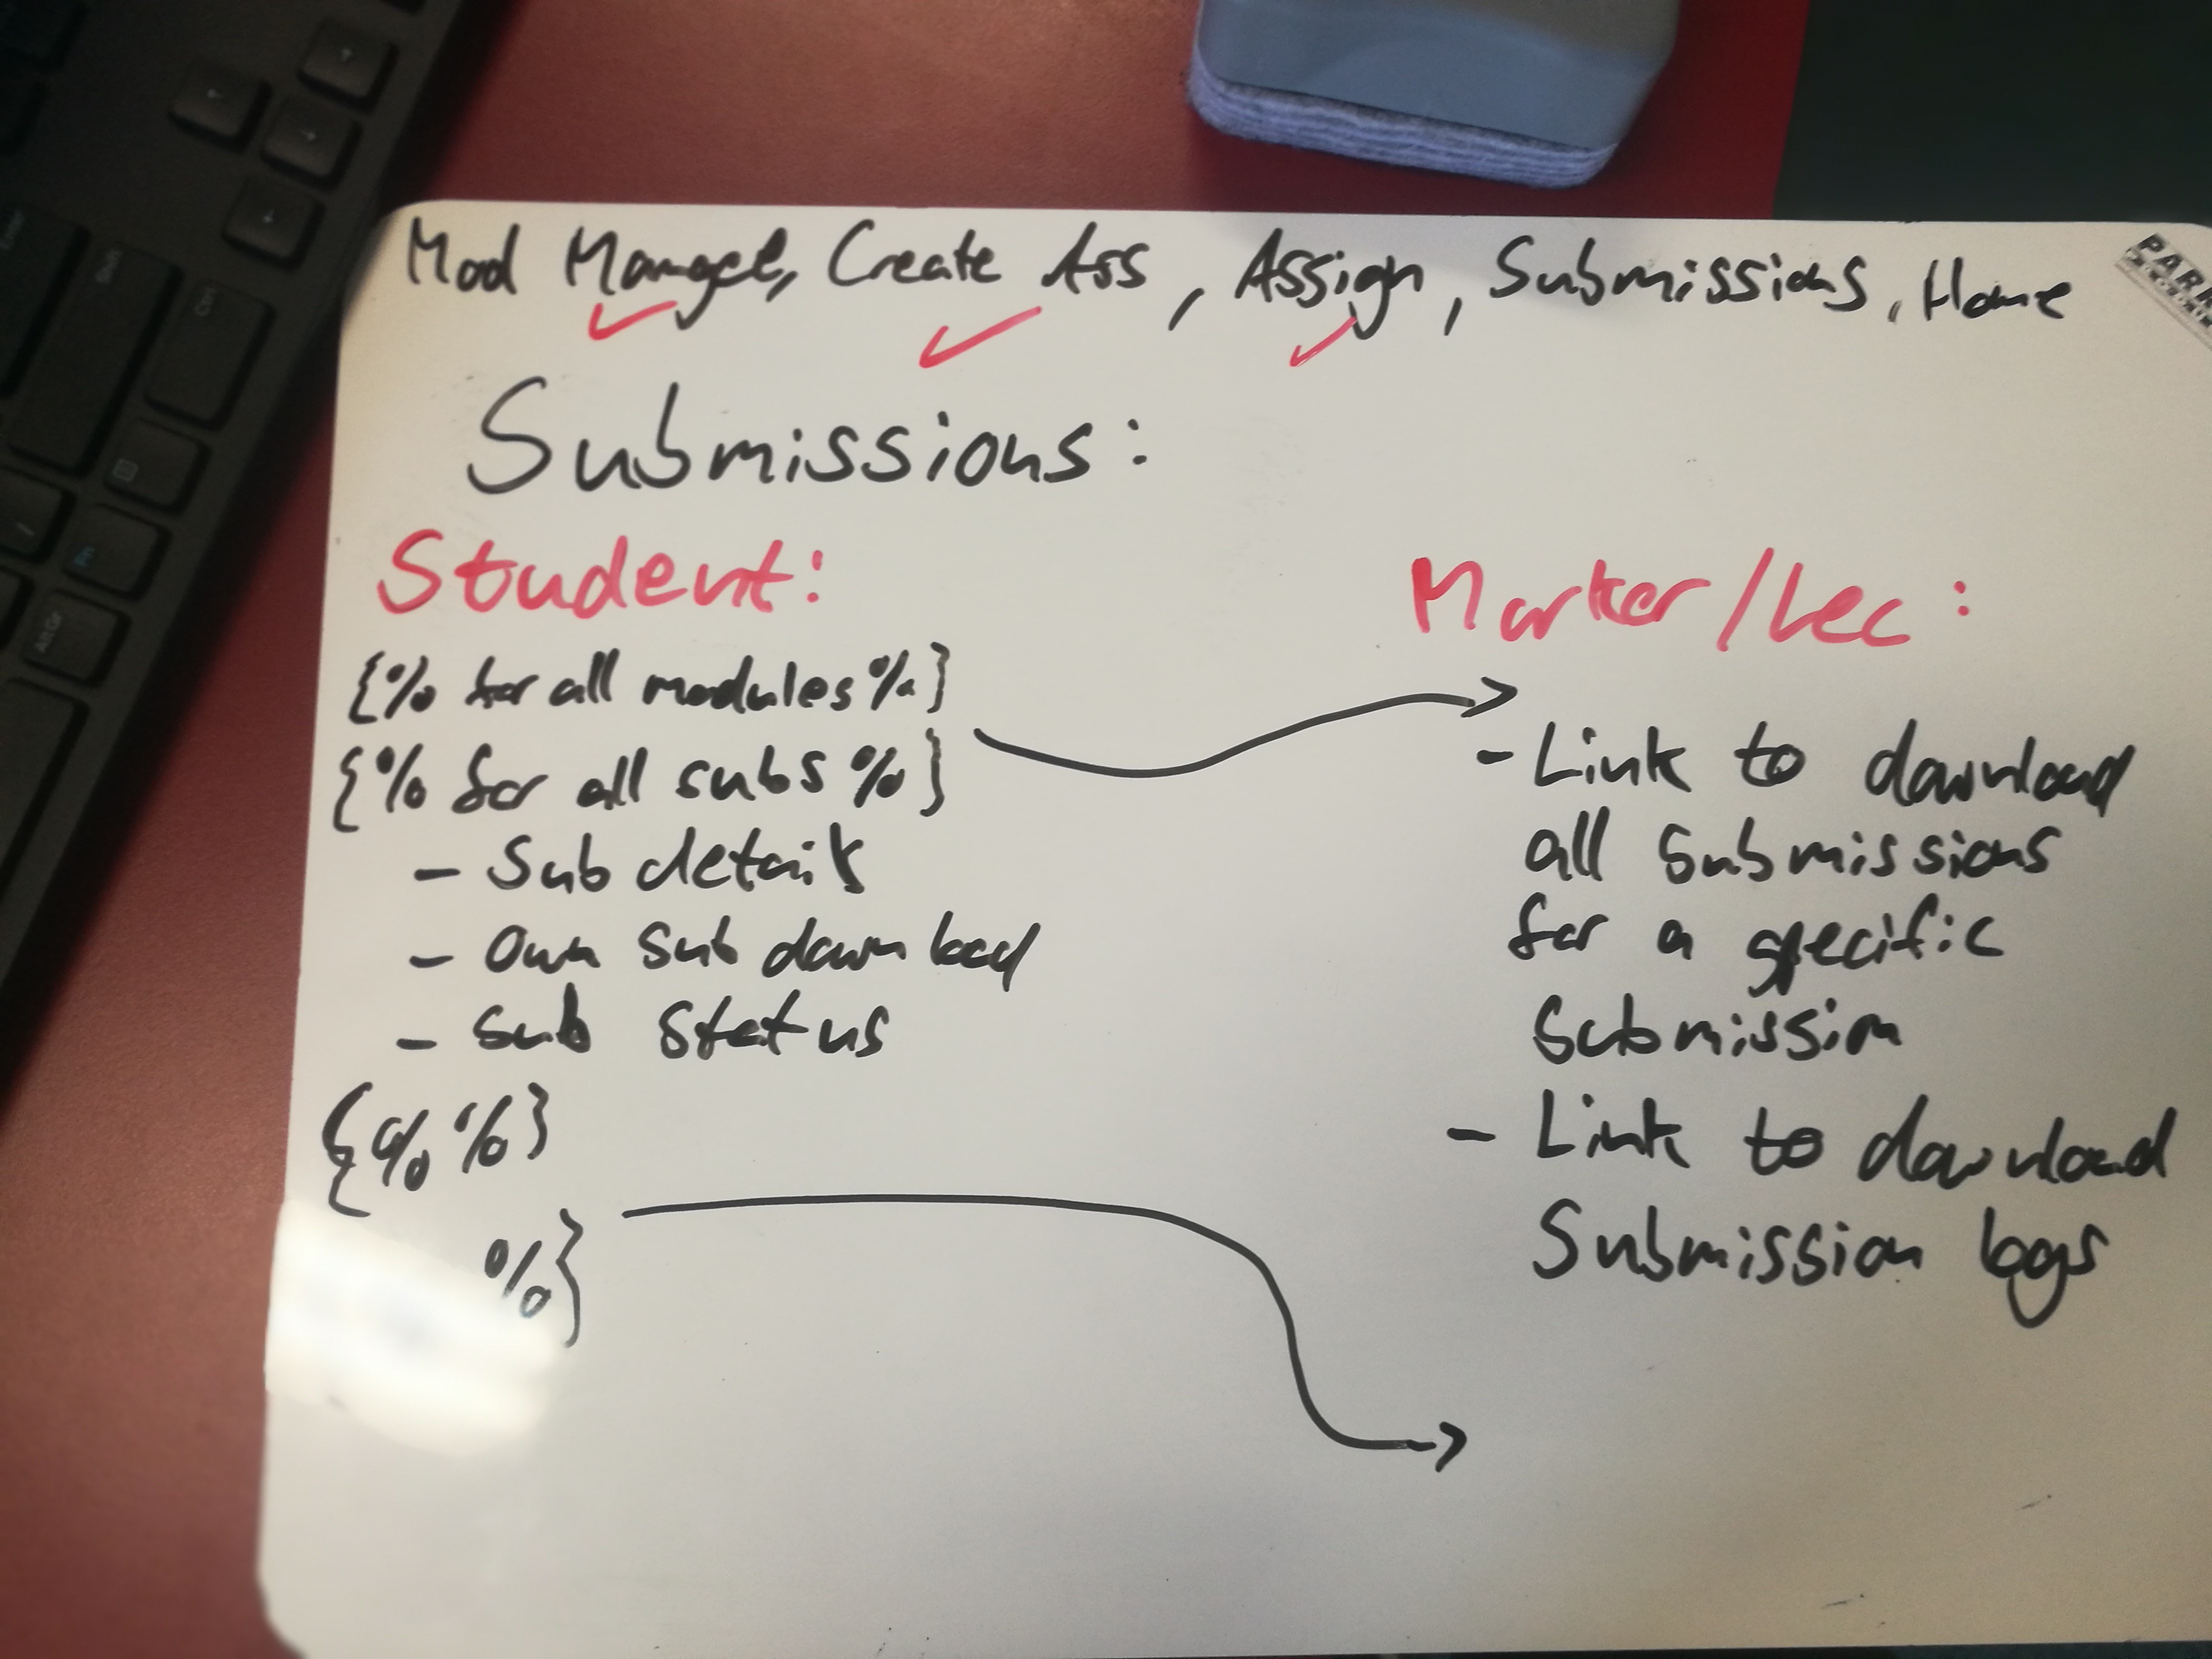 Mod Manage, Create Ass, Assign, Submissions, Home
PARR
Submissions:
Student:
{% for all modules %}
{% for all subs %}
- Sub details
- Own Sub download
- Sub Status
{% %}
%}
Marker/Lec:
- Link to download
all submissions
for a specific
Submission
- Link to download
Submission logs
Ctrl
Fn
Alt Gr